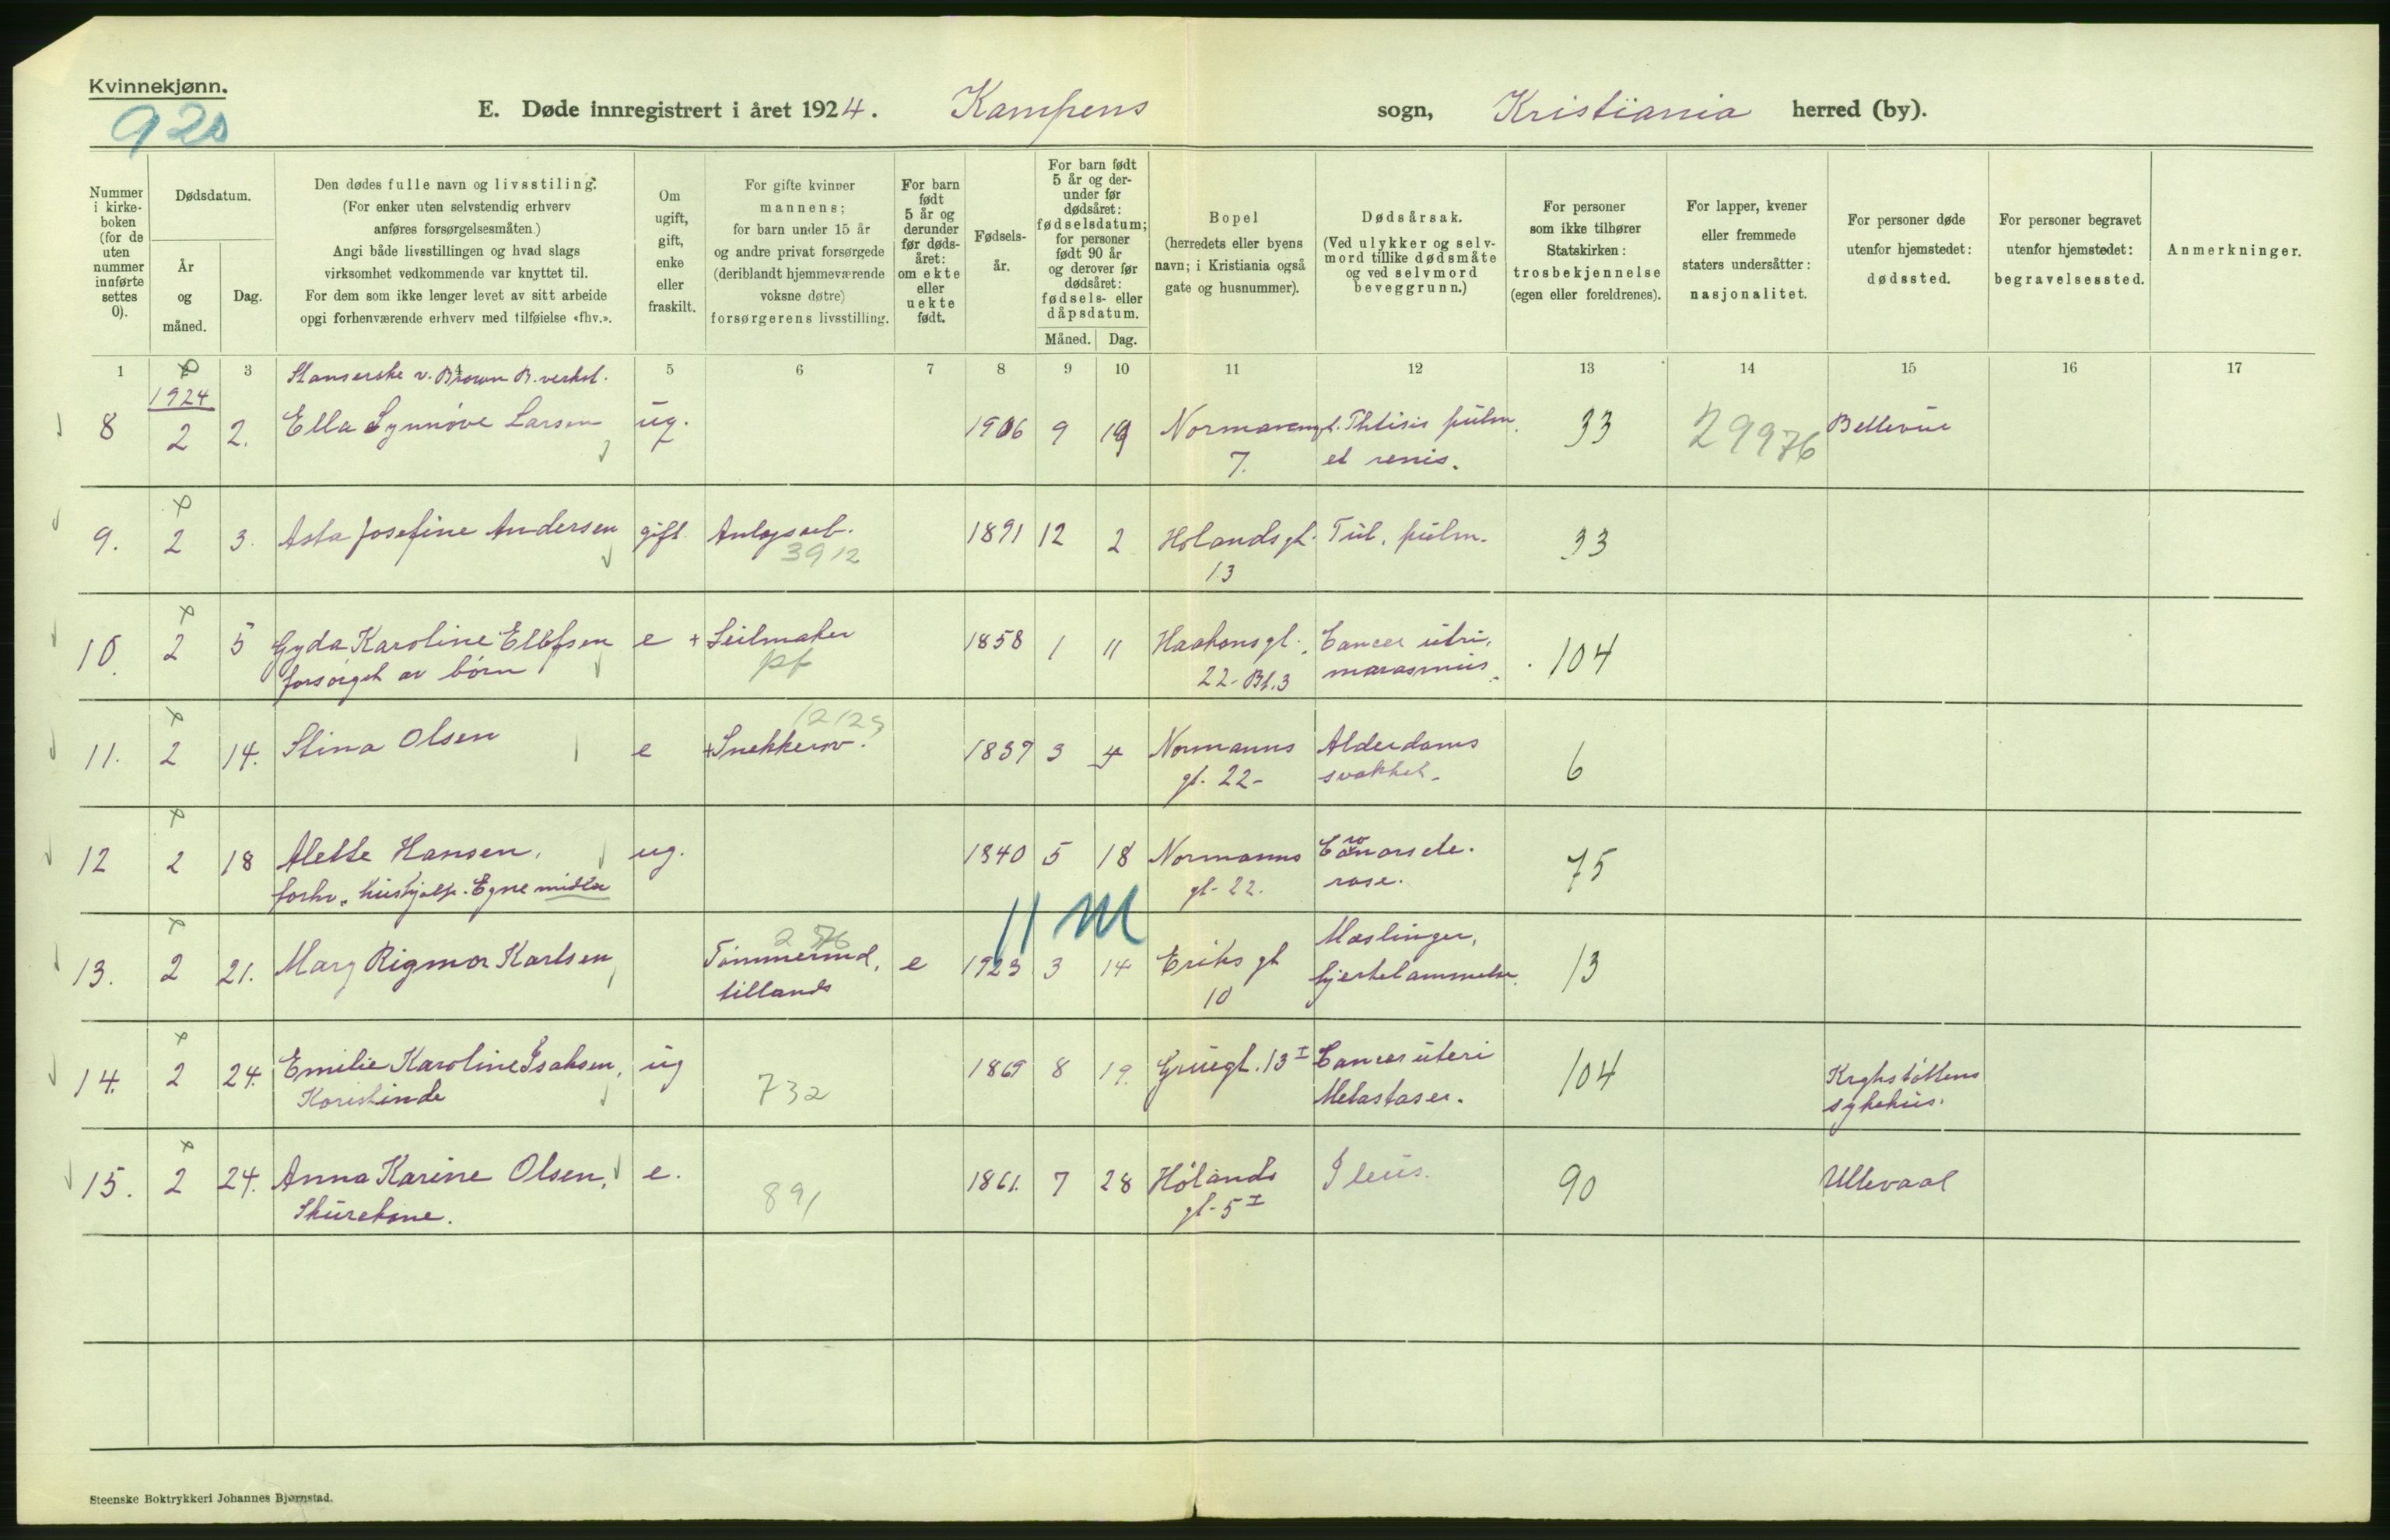 Kvinnekjønn.
920
E. Døde innregistrert i året 1924. Kampens sogn, Kristiania herred (by).
Nummer i kirkeboken (for de uten nummer innførte settes 0).
Dødsdatum.
År og måned.
Dag.
Den dødes fulle navn og livsstiling.
(For enker uten selvstendig erhverv
anføres forsørgelsesmåten.)
Angi både livsstillingen og hvad slags
virksomhet vedkommende var knyttet til.
For dem som ikke lenger levet av sitt arbeide
opgi forhenværende erhverv med tilføielse «fhv.».
Om ugift, gift, enke eller fraskilt.
For gifte kvinner
mannens;
for barn under 15 år
og andre privat forsørgede
(deriblandt hjemmeværende
voksne døtre)
forsørgerens livsstilling.
For barn født 5 år og derunder før dødsåret: om ekte eller uekte født.
Fødselsår.
For barn født 5 år og derunder før dødsåret: fødselsdatum; for personer født 90 år og derover før dødsåret: fødsels- eller dåpsdatum.
Måned. Dag.
Bopel
(herredets eller byens
navn; i Kristiania også
gate og husnummer).
Dødsårsak.
(Ved ulykker og selvmord tillike dødsmåte
og ved selvmord
beveggrunn.)
For personer
som ikke tilhører
Statskirken:
trosbekjennelse
(egen eller foreldrenes).
For lapper, kvener
eller fremmede
staters undersåtter:
nasjonalitet.
For personer døde
utenfor hjemstedet:
dødssted.
For personer begravet
utenfor hjemstedet:
begravelsessted.
Anmerkninger.
1 3 4 5 6 7 8 9 10 11 12 13 14 15 16 17
1924
Stanserske v. Brown B. verkst.
8 2 2. Ella Synnøve Larsen ug. 1906 9 19 Phtisis pulm. 33 29976 Bellevue
7. et renis.
9. 2 3. Asta Josefine Andersen gift. 1891 12 2 Hølandsgt. Tub. pulm. 33
3912 13
10. 2 5 Gyda Karoline Ellefsen e + Seilmaker 1858 1 11 Haakonsgt. Cancer utri, 104
forsørget av børn pf 22- Bl. 3 marasmus.
12129
11. 2 14. Stina Olsen e + Snekkersv. 1837 3 4 Normanns Alderdoms 6
gt. 22- svakhet.
12 2 18 Alette Hansen, ug. 1840 5 18 Normanns 75
forhv. hushjælp. Egne midler gt- 22. rose.
11 M
13. 2 21. Mary Rigmor Karlsen Tømmermd, e 1923 3 14 Eriks gt Mæslinger, 13
tillands 10 hjertelammelse.
14. 2 24. Emilie Karoline Isaksen, ug 732 1869 8 19. Gruegt. 13 I Cancer uteri 104 Krghstøttens
Metastaser. sykehus.
15. 2 24. Anna Karine Olsen, e. 891 1861. 7 28 Hølands Ileus. 90 Ullevaal
Skurekone. gt- 5 I
Steenske Boktrykkeri Johannes Bjørnstad.